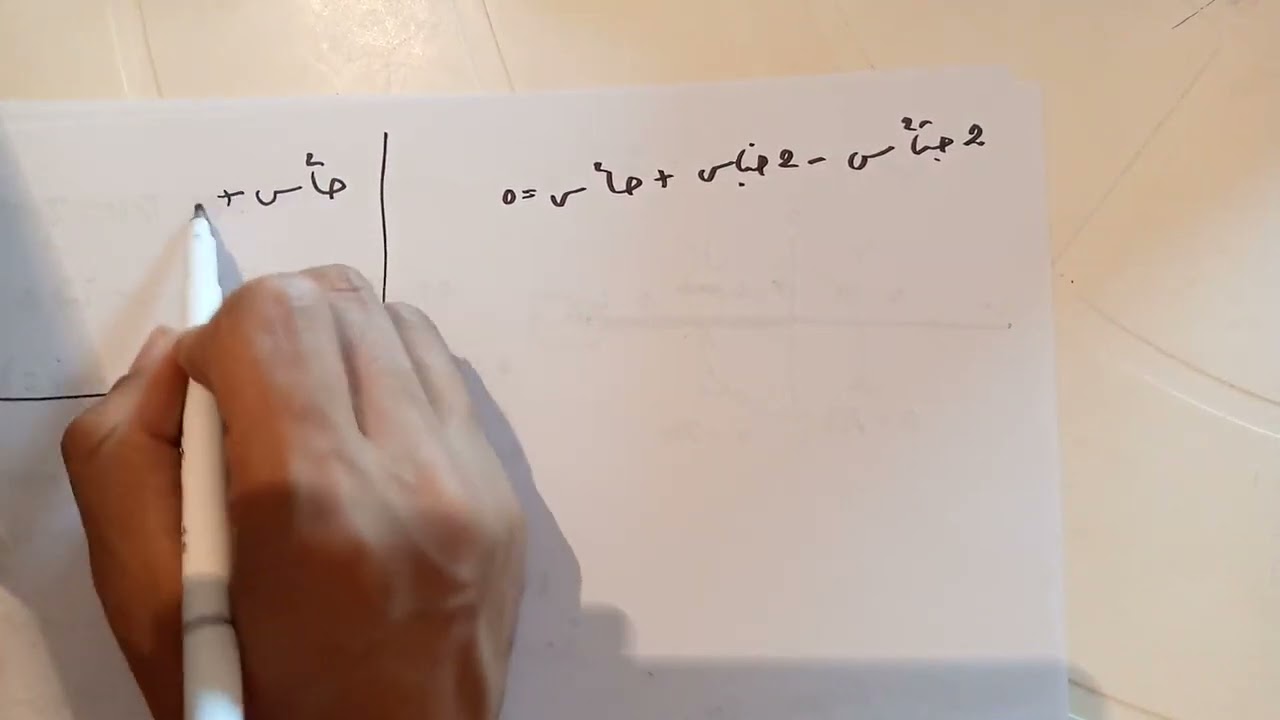 2 جتا²س - 2 جتاس + جا²س = 0
جا²س +